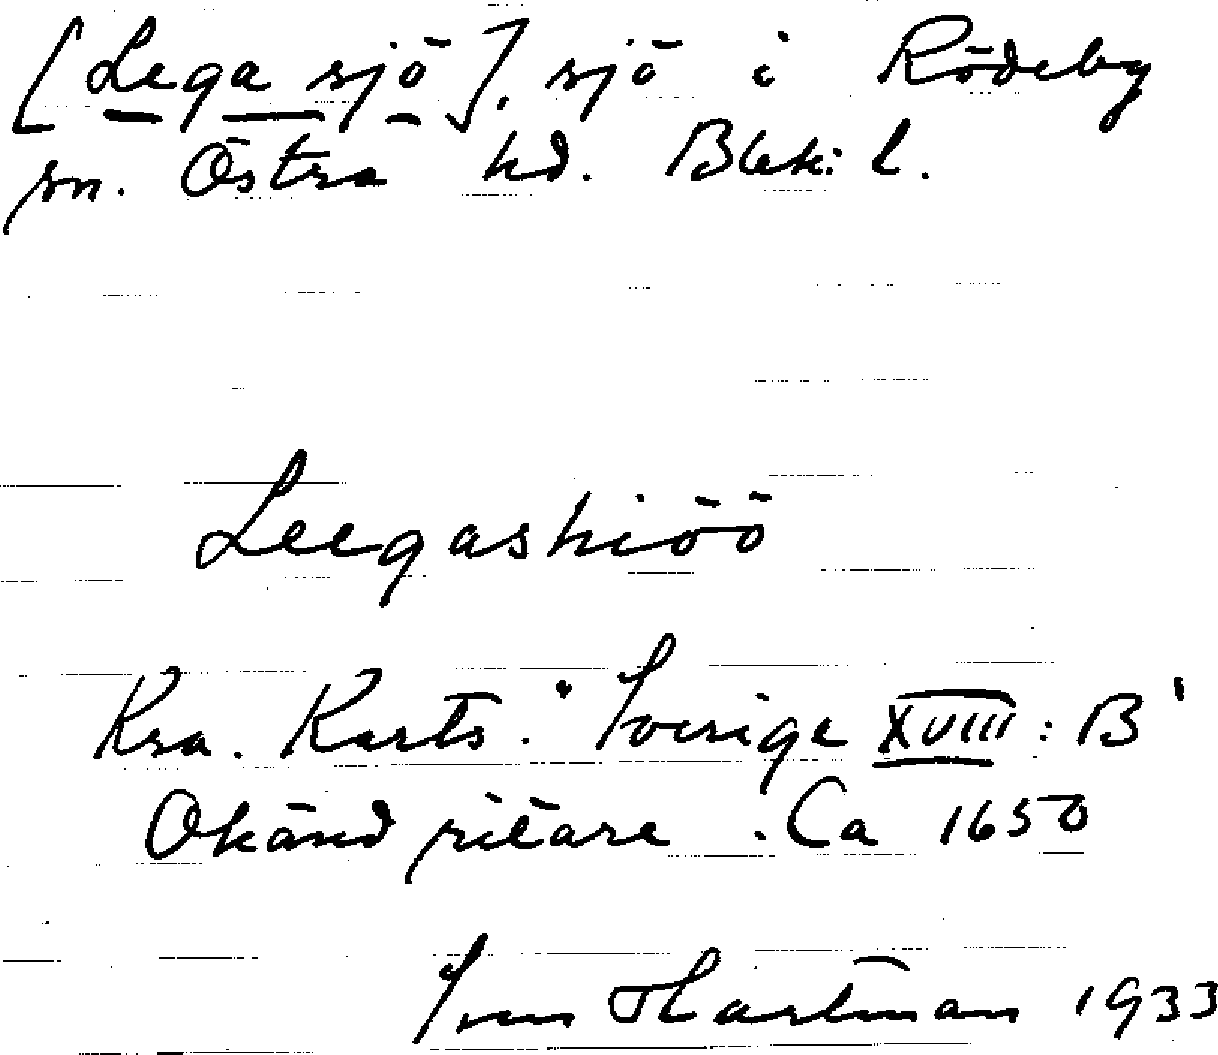 [Lega sjö], sjö i Rödeby
sn. Östra hd. Blek: l.
Leegashiöö
Kra. Karts. Sverige XVIII: B'
Okänd ritare. Ca 1650
Sven Hartman 1933